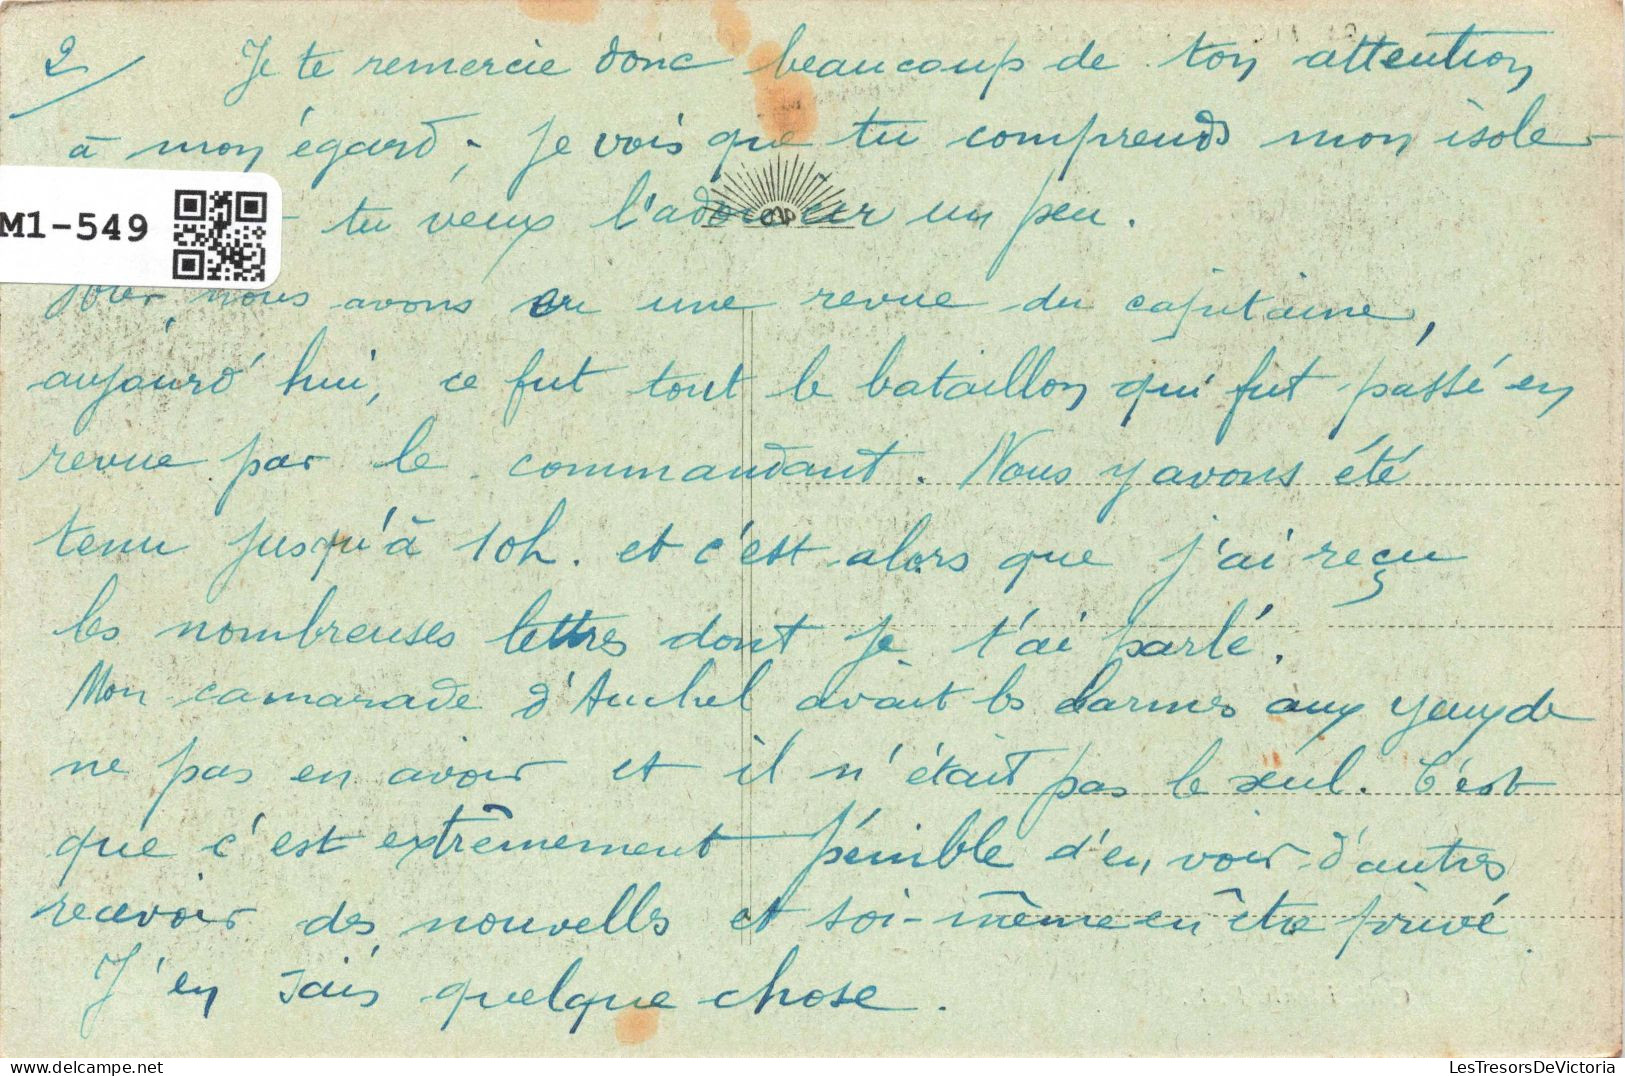 2/ Je te remercie donc beaucoup de ton attention
à mon égard ; je vois que tu comprends mon isole-
M1-549
- tu veux l'adoucir un peu.
Hier, nous avons eu une revue du capitaine,
aujourd'hui, ce fut tout le bataillon qui fut passé en
revue par le commandant. Nous y avons été
tenu jusqu'à 10h. et c'est alors que j'ai reçu
les nombreuses lettres dont je t'ai parlé.
Mon camarade d'Auchel avait les larmes aux yeux de
ne pas en avoir et il n'était pas le seul. C'est
que c'est extrêmement pénible d'en voir d'autres
recevoir des nouvelles et soi-même en être privé.
J'en sais quelque chose.
LesTresorsDeVictoria